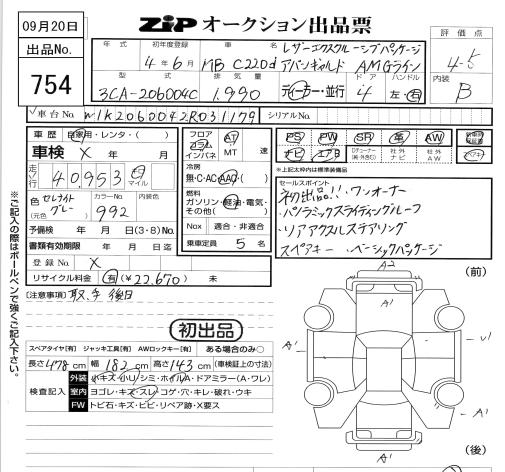 09月20日
ZIP オークション出品票
評価点
4-5
出品No.
754
年式 初年度登録 車名
4年6月 MB C220d アバンギャルド AMGライン
レザーエクスクルーシブパッケージ
型式 排気量 ドア ハンドル
3CA-206004C 1.990 ディーラー・並行 4 左・右
内装
B
車台No. W1K2060042R031179 シリアルNo.
車歴 自家用・レンタ・( )
車検 X 年 月
走行 40,953 キロ マイル
色 セレナイトグレー
(元色)
カラーNo. 992
内装色
予備検 年 月 日(3・8)No.
書類有効期限 年 月 日迄
登録No. X
リサイクル料金 有(¥22,670) 未
[注意事項] 取、手 後日
フロア コラム インパネ
AT MT 速
冷房
無・C・AC・AAC・( )
燃料
ガソリン・軽油・電気・その他( )
Nox 適合・非適合
乗車定員 5 名
PS PW SR 革 AW
ナビ エアB Dチューナー(純・外含む) 社外ナビ 社外AW
*上記太枠内は標準装備品
セールスポイント
初出品!!・ワンオーナー
・パノラミックスライディングルーフ
・リアアクスルステアリング
スペアキー ・ベーシックパッケージ
※ご記入の際はボールペンで強くご記入下さい。
初出品
スペアタイヤ[有] ジャッキ工具[有] AWロックキー[有] ある場合のみ○
長さ478cm 幅182cm 高さ143cm (車検証上の寸法)
検査記入
外装 小キズ・小U・シミ・ホイルA・ドアミラー(A・ワレ)
室内 ヨゴレ・キズ・スレ・コゲ・穴・キレ・破れ・ウキ
FW トビ石・キズ・ヒビ・リペア跡・X要ス
(前)
A2
A'
A'
U'
A'
A'
A'
(後)